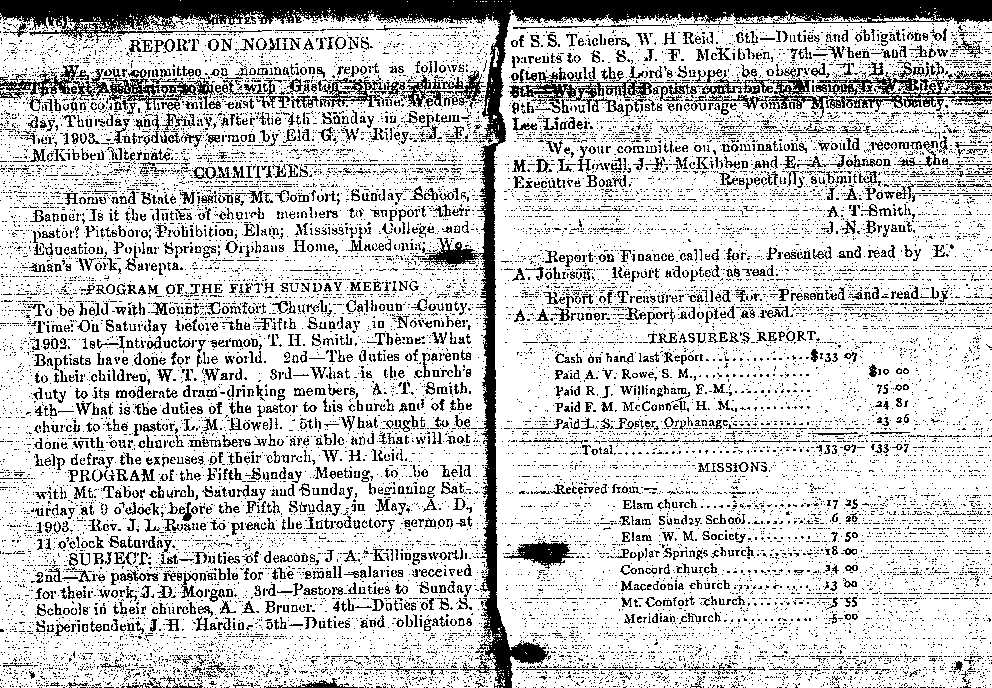 MINUTES OF THE
REPORT ON NOMINATIONS.
We, your committee on nominations, report as follows:
The next Association to meet with Gaston Springs church,
Calhoun county, three miles east of Pittsboro. Time: Wednes-
day, Thursday and Friday, after the 4th Sunday in Septem-
ber, 1903. Introductory sermon by Eld. G. W. Riley. J. F.
McKibben alternate.
COMMITTEES.
Home and State Missions, Mt. Comfort; Sunday Schools,
Banner; Is it the duties of church members to support their
pastor? Pittsboro; Prohibition, Elam; Mississippi College and
Education, Poplar Springs; Orphans Home, Macedonia; Wo-
man's Work, Sarepta.
PROGRAM OF THE FIFTH SUNDAY MEETING
To be held with Mount Comfort Church, Calhoun County.
Time: On Saturday before the Fifth Sunday in November,
1902. 1st—Introductory sermon, T. H. Smith. Theme: What
Baptists have done for the world. 2nd—The duties of parents
to their children, W. T. Ward. 3rd—What is the church's
duty to its moderate dram-drinking members, A. T. Smith.
4th—What is the duties of the pastor to his church and of the
church to the pastor, L. M. Howell. 5th—What ought to be
done with our church members who are able and that will not
help defray the expenses of their church, W. H. Reid.
PROGRAM of the Fifth Sunday Meeting, to be held
with Mt. Tabor church, Saturday and Sunday, beginning Sat-
urday at 9 o'clock, before the Fifth Sunday in May, A. D.,
1903. Rev. J. L. Roane to preach the Introductory sermon at
11 o'clock Saturday.
SUBJECT: 1st—Duties of deacons, J. A. Killingsworth.
2nd—Are pastors responsible for the small salaries received
for their work, J. D. Morgan. 3rd—Pastors duties to Sunday
Schools in their churches, A. A. Bruner. 4th—Duties of S. S.
Superintendent, J. H. Hardin. 5th—Duties and obligations
of S. S. Teachers, W. H Reid. 6th—Duties and obligations of
parents to S. S., J. F. McKibben, 7th—When and how
often should the Lord's Supper be observed, T. H. Smith.
8th—Why should Baptists contribute to Missions, G. W. Riley.
9th—Should Baptists encourage Womans' Missionary Society.
Lee Linder.
We, your committee on, nominations, would recommend
M. D. L. Howell, J. F. McKibben and E. A. Johnson as the
Executive Board. Respectfully submitted,
J. A. Powell,
A. T. Smith,
J. N. Bryant.
Report on Finance called for. Presented and read by E.
A. Johnson. Report adopted as read.
Report of Treasurer called for. Presented and read by
A. A. Bruner. Report adopted as read.
TREASURER'S REPORT.
Cash on hand last Report.................$133 07
Paid A. V. Rowe, S. M., $10 00
Paid R. J. Willingham, F. M., 75 00
Paid F. M. McConnell, H. M., 24 81
Paid L. S. Foster, Orphanage, 23 26
Total 133 07 133 07
MISSIONS
Received from—
Elam church 17 25
Elam Sunday School 6 26
Elam W. M. Society 7 50
Poplar Springs church 18 00
Concord church 14 00
Macedonia church 13 00
Mt. Comfort church 5 55
Meridian church 5 00